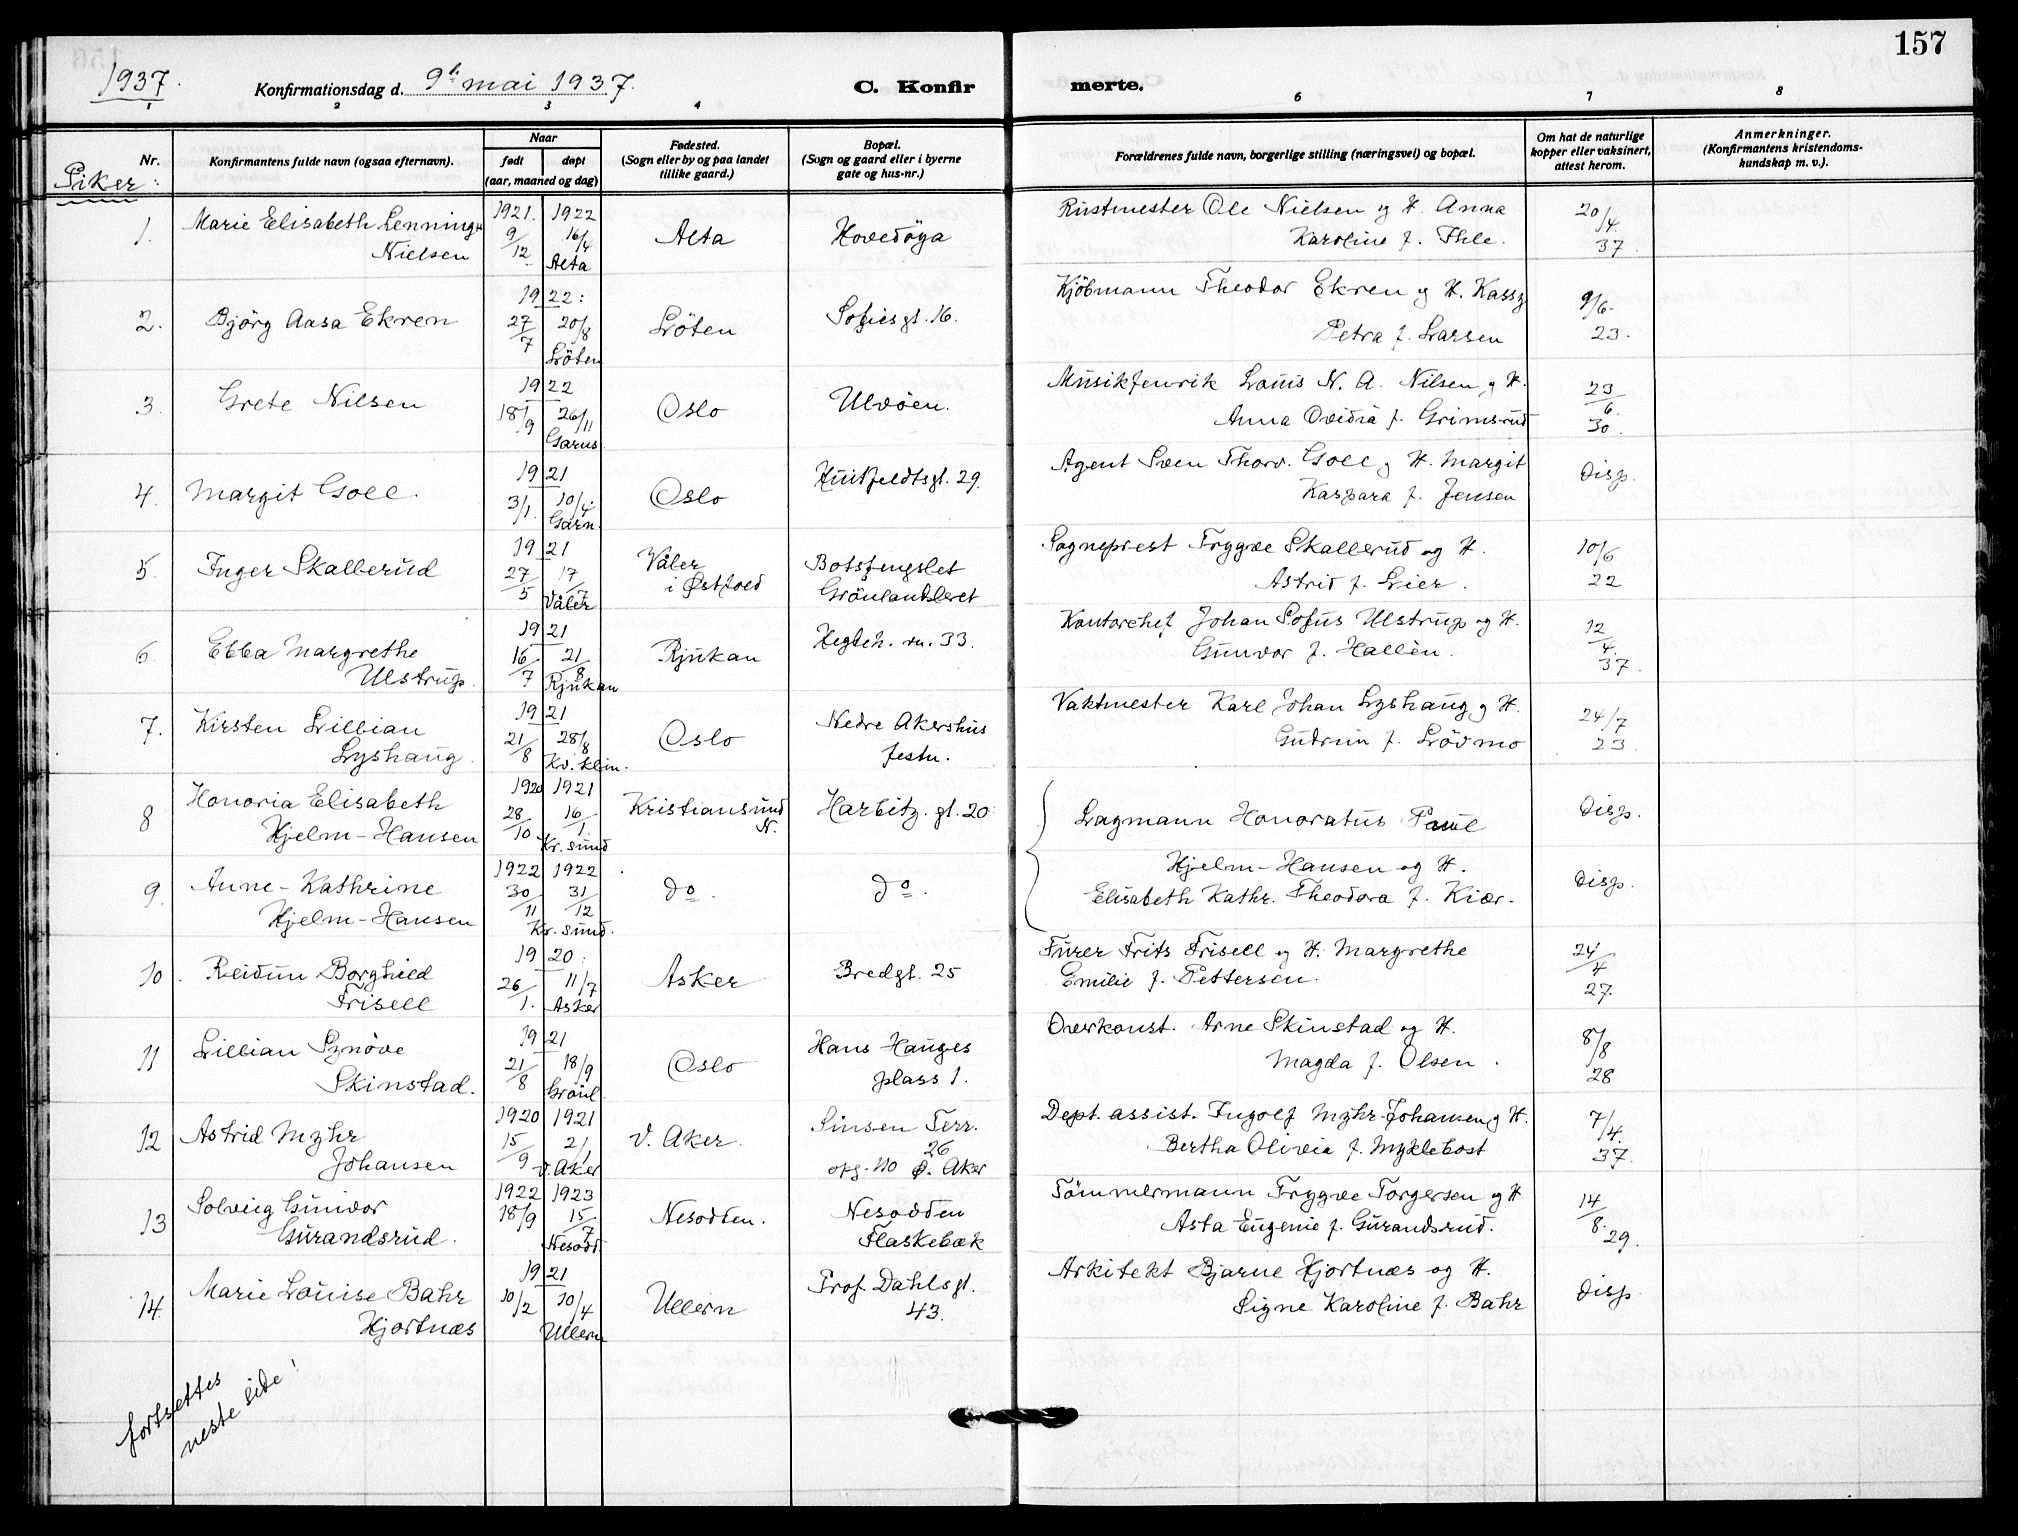 157
1937.
Konfirmationsdag d. 9de mai 1937.
C. Konfirmerte.
1 2 3 4 6 7 8
Nr.
Konfirmantens fulde navn (ogsaa efternavn).
Naar
født
døpt
(aar, maaned og dag)
Fødested.
(Sogn eller by og paa landet
tillike gaard.)
Bopæl.
(Sogn og gaard eller i byerne
gate og hus-nr.)
Forældrenes fulde navn, borgerlige stilling (næringsvei) og bopæl.
Om hat de naturlige
kopper eller vaksinert,
attest herom.
Anmerkninger.
(Konfirmantens kristendoms-
kundskap m. v.).
Piker:
1. Marie Elisabeth Lenning
Nielsen
1921. 9/12 1922 16/4 Alta
Alta
Hovedöya
Rustmester Ole Nielsen og H. Anna
Karoline f. Ihle.
20/4 37.
2. Bjórg Aasa Ekren
1922: 27/7 20/8 Löten
Löten
Sofiesgt. 16.
Kjöbmann Theodor Ekren og H. Kassy
Petra f. Larsen
9/6. 23.
3. Grete Nilsen
1922 18/9 26/11 Garns.
Oslo
Ulvöen.
Musikfenrik Louis N. A. Nilsen og H.
Anna Ovidia f. Grimsrud
23/6. 30.
4. Margit Goll.
1921 3/1. 10/4. Garn.
Oslo
Huitfeldtsgt. 29.
Agent Sven Thorv. Goll og H. Margit
Kaspara f. Jensen
Disp.
5. Inger Skallerud
1921 27/5 17/7 Våler
Våler
i Østfold
Botsfengslet
Grönlandsleret
Sogneprest Trygve Skallerud og H.
Astrid f. Lier.
10/6 22
6. Ebba Margrethe
Ulstrup.
1921 16/7 21/8 Rjukan
Rjukan
Hegdeh. vn. 33.
Kontorchef Johan Sofus Ulstrup og H.
Gunvor f. Hallèn.
12/4. 37.
7. Kirsten Lillian
Lyshaug.
1921 21/8 28/8 Kv. klin.
Oslo
Nedre Akershus
festn.
Vaktmester Karl Johan Lyshaug og H.
Gudrun f. Lövmo
24/7 23.
8 Honoria Elisabeth
Hjelm-Hansen
1920 28/10 1921 16/1. Kr. sund
Kristiansund
N.
Harbitz. gt. 20
Lagmann Honoratus Paul
Disp.
9. Anne-Kathrine
Hjelm-Hansen
1922 30/11 1922 31/12 Kr. sund.
do.
do.
Hjelm-Hansen og H.
Elisabeth Kathr. Theodora f. Kiær.
Disp.
10. Reidun Borghild
Frisell
1920: 26/1. 11/7 Asker
Asker
Bredgt. 25
Furer Frits Frisell og H. Margrethe
Emilie f. Pettersen.
24/4 27.
11 Lillian Synöve
Skinstad.
1921 21/8 18/9 Grönl.
Oslo
Hans Hauges
plass 1.
Overkonst. Arne Skinstad og H.
Magda f. Olsen.
8/8 28
12 Astrid Myhr
Johansen
1920 15/9 1921 2/1 V. Aker
V. Aker.
Sinsen Terr.
26
opg. no Ø. Aker
Dept. assist. Ingolf Myhr-Johansen og H.
Bertha Olivia f. Myklebost
7/4. 37.
13 Solveig Gunvor
Gurandsrud.
1922 18/9 1923 15/7 Nesodd.
Nesodden.
Nesodden
Flaskebæk
Tömmermann Trygve Torgersen og H
Asta Eugenie f. Gurandsrud.
14/8. 29.
14. Marie Louise Bahr
Hjortnæs
1921 10/2 10/4 Ullern
Ullern
Prof. Dahlsgt.
43.
Arkitekt Bjarne Hjortnæs og H.
Signe Karoline f. Bahr
Disp
fortsettes
neste side!